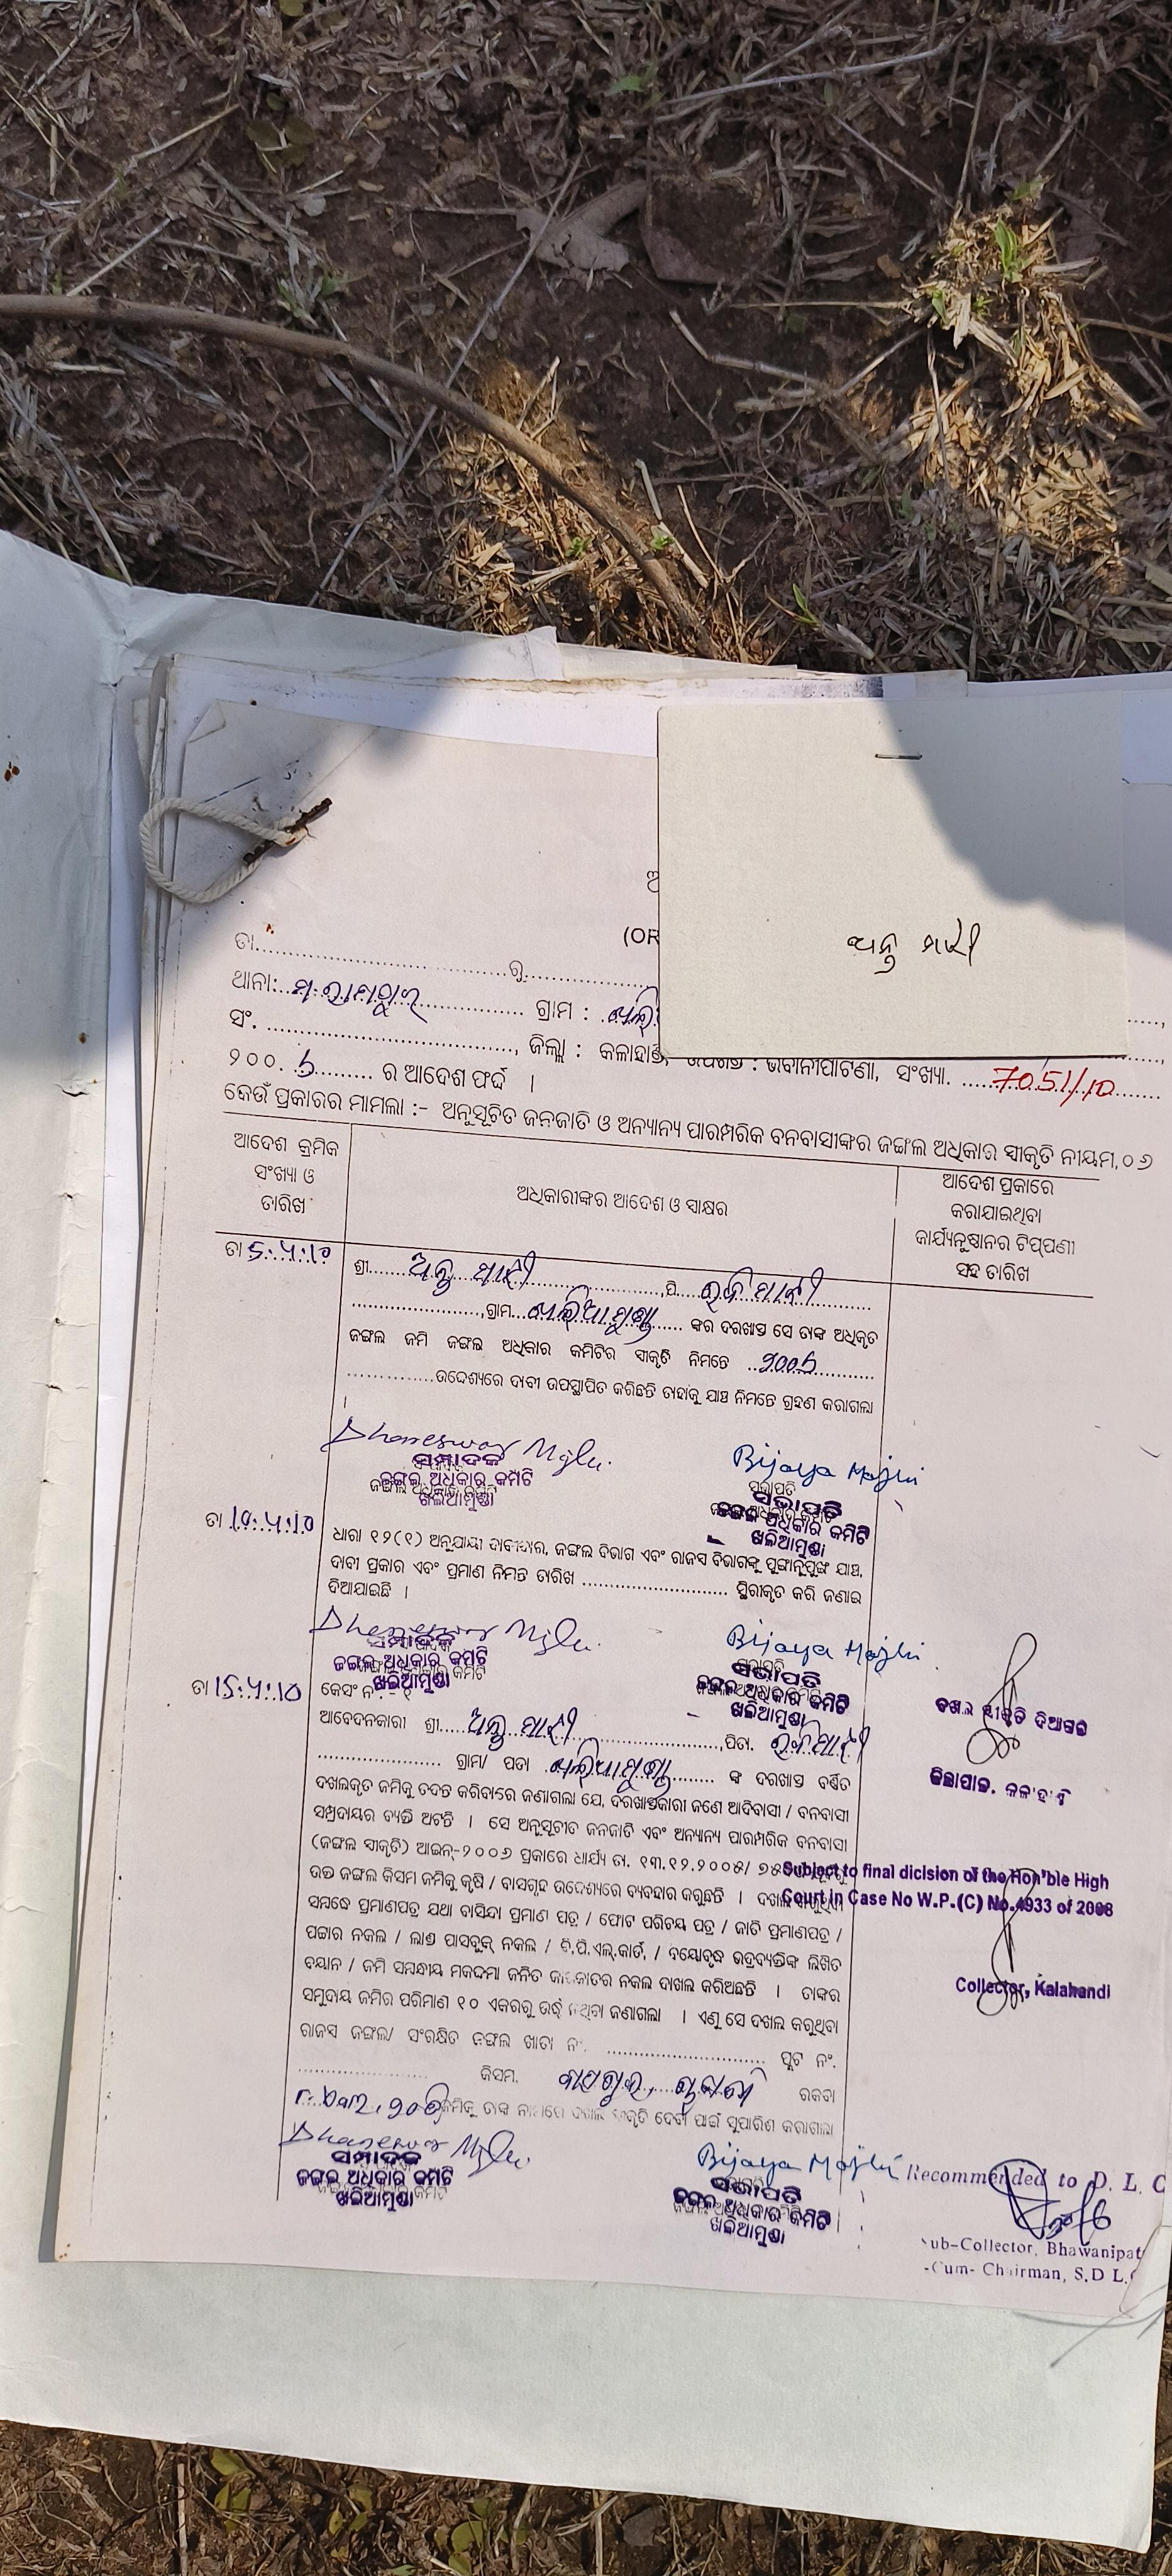 ଅନ୍ତୁ ମାଝୀ
(OR
ତା........................ରୁ....................
ଥାନା:.. ମ.ରାମପୁର ............ ଗ୍ରାମ :
ସଂ. ................................, ଜିଲ୍ଲା : କଳାହାଣ୍ଡି, ଉପଖଣ୍ଡ : ଭବାନୀପାଟଣା, ସଂଖ୍ୟା. ....7051/10....
୨୦୦.6......... ର ଆଦେଶ ଫର୍ଦ୍ଦ ।
କେଉଁ ପ୍ରକାରର ମାମଲା :- ଅନୁସୂଚିତ ଜନଜାତି ଓ ଅନ୍ୟାନ୍ୟ ପାରମ୍ପରିକ ବନବାସୀଙ୍କର ଜଙ୍ଗଲ ଅଧିକାର ସ୍ୱୀକୃତି ନୀୟମ,୦୬
ଆଦେଶ କ୍ରମିକ
ସଂଖ୍ୟା ଓ
ତାରିଖ
ଅଧିକାରୀଙ୍କର ଆଦେଶ ଓ ସାକ୍ଷର
ଆଦେଶ ପ୍ରକାରେ
କରାଯାଇଥିବା
କାର୍ଯ୍ୟାନୁଷ୍ଠାନର ଟିପ୍‌ପଣୀ
ସହ ତାରିଖ
ତା 5.4.10
ଶ୍ରୀ...... ଅନ୍ତୁ ମାଝୀ ..................,ପି.... ରବି ମାଝୀ .........
......................,ଗ୍ରାମ... ଖଲିଆମୁଣ୍ଡା ...... ଙ୍କର ଦରଖାସ୍ତ ସେ ତାଙ୍କ ଅଧିକୃତ
ଜଙ୍ଗଲ ଜମି ଜଙ୍ଗଲ ଅଧିକାର କମିଟିର ସ୍ୱୀକୃତି ନିମନ୍ତେ ..2006..........
...............ଉଦ୍ଦେଶ୍ୟରେ ଦାବୀ ଉପସ୍ଥାପିତ କରିଛନ୍ତି ତାହାକୁ ଯାଞ୍ଚ ନିମନ୍ତେ ଗ୍ରହଣ କରାଗଲା
।
Dhaneswar Majhi. Bijaya Majhi
ସମ୍ପାଦକ ସଭାପତି
ଜଙ୍ଗଲ ଅଧିକାର କମିଟି ଜଙ୍ଗଲ ଅଧିକାର କମିଟି
ଖଲିଆମୁଣ୍ଡା ଖଲିଆମୁଣ୍ଡା
ତା 10.4.10
ଧାରା ୧୨(୧) ଅନୁଯାୟୀ ଦାବୀଦାର, ଜଙ୍ଗଲ ବିଭାଗ ଏବଂ ରାଜସ୍ୱ ବିଭାଗଙ୍କୁ ପୁଙ୍ଖାନୁପୁଙ୍ଖ ଯାଞ୍ଚ,
ଦାବୀ ପ୍ରକାର ଏବଂ ପ୍ରମାଣ ନିମନ୍ତେ ତାରିଖ ........................... ସ୍ଥିରୀକୃତ କରି ଜଣାଇ
ଦିଆଯାଇଛି ।
Dhaneswar Majhi. Bijaya Majhi
ସମ୍ପାଦକ ସଭାପତି
ଜଙ୍ଗଲ ଅଧିକାର କମିଟି ଜଙ୍ଗଲ ଅଧିକାର କମିଟି
ଖଲିଆମୁଣ୍ଡା ଖଲିଆମୁଣ୍ଡା
ତା 15.4.10
କେସ୍‌ ନଂ - ୧
ଆବେଦନକାରୀ ଶ୍ରୀ..... ଅନ୍ତୁ ମାଝୀ ..................,ପିତା. ରବି ମାଝୀ
...................... ଗ୍ରାମ/ ପଡା .. ଖଲିଆମୁଣ୍ଡା ........ ଙ୍କ ଦରଖାସ୍ତ ବର୍ଣ୍ଣିତ
ଦଖଲକୃତ ଜମିକୁ ତଦନ୍ତ କରିବାରେ ଜଣାଗଲା ଯେ, ଦରଖାସ୍ତକାରୀ ଜଣେ ଆଦିବାସୀ / ବନବାସୀ
ସମ୍ପ୍ରଦାୟର ବ୍ୟକ୍ତି ଅଟନ୍ତି । ସେ ଅନୁସୂଚୀତ ଜନଜାତି ଏବଂ ଅନ୍ୟାନ୍ୟ ପାରମ୍ପରିକ ବନବାସୀ
(ଜଙ୍ଗଲ ସ୍ୱୀକୃତି) ଆଇନ୍-୨୦୦୬ ପ୍ରକାରେ ଧାର୍ଯ୍ୟ ତା. ୧୩.୧୨.୨୦୦୫/ ୭୫
ଉକ୍ତ ଜଙ୍ଗଲ କିସମ ଜମିକୁ କୃଷି / ବାସଗୃହ ଉଦ୍ଦେଶ୍ୟରେ ବ୍ୟବହାର କରୁଛନ୍ତି । ଦଖଲ
ସମ୍ବନ୍ଧେ ପ୍ରମାଣପତ୍ର ଯଥା ବାସିନ୍ଦା ପ୍ରମାଣ ପତ୍ର / ଫୋଟ ପରିଚୟ ପତ୍ର / ଜାତି ପ୍ରମାଣପତ୍ର /
ପଟ୍ଟାର ନକଲ / ଲାଣ୍ଡ ପାସବୁକ୍ ନକଲ / ବି.ପି.ଏଲ୍.କାର୍ଡ, / ବୟୋବୃଦ୍ଧ ଭଦ୍ରବ୍ୟକ୍ତିଙ୍କ ଲିଖିତ
ବୟାନ / ଜମି ସମ୍ବନ୍ଧୀୟ ମକଦ୍ଦମା ଜନିତ କାଗଜାତର ନକଲ ଦାଖଲ କରିଅଛନ୍ତି । ତାଙ୍କର
ସମୁଦାୟ ଜମିର ପରିମାଣ ୧୦ ଏକରରୁ ଉର୍ଦ୍ଧ୍ୱ ନଥିବା ଜଣାଗଲା । ଏଣୁ ସେ ଦଖଲ କରୁଥିବା
ରାଜସ୍ୱ ଜଙ୍ଗଲ/ ସଂରକ୍ଷିତ ଜଙ୍ଗଲ ଖାତା ନଂ. ............................ ପ୍ଲଟ ନଂ.
....................... କିସମ. ରକବା
ଜମିକୁ ତାଙ୍କ ନାମରେ ଦଖଲ ସ୍ୱୀକୃତି ଦେବା ପାଇଁ ସୁପାରିଶ କରାଗଲା
Dhaneswar Majhi. Bijaya Majhi
ସମ୍ପାଦକ ସଭାପତି
ଜଙ୍ଗଲ ଅଧିକାର କମିଟି ଜଙ୍ଗଲ ଅଧିକାର କମିଟି
ଖଲିଆମୁଣ୍ଡା ଖଲିଆମୁଣ୍ଡା
ଦଖଲ ସ୍ୱୀକୃତି ଦିଆଗଲା
ଜିଲ୍ଲାପାଳ, କଳାହାଣ୍ଡି
Subject to final dicision of the Hon'ble High
Court in Case No W.P.(C) No.4933 of 2008
Collector, Kalahandi
Recommended to D. L. C
Sub-Collector, Bhawanipat
-Cum- Chairman, S.D L.C